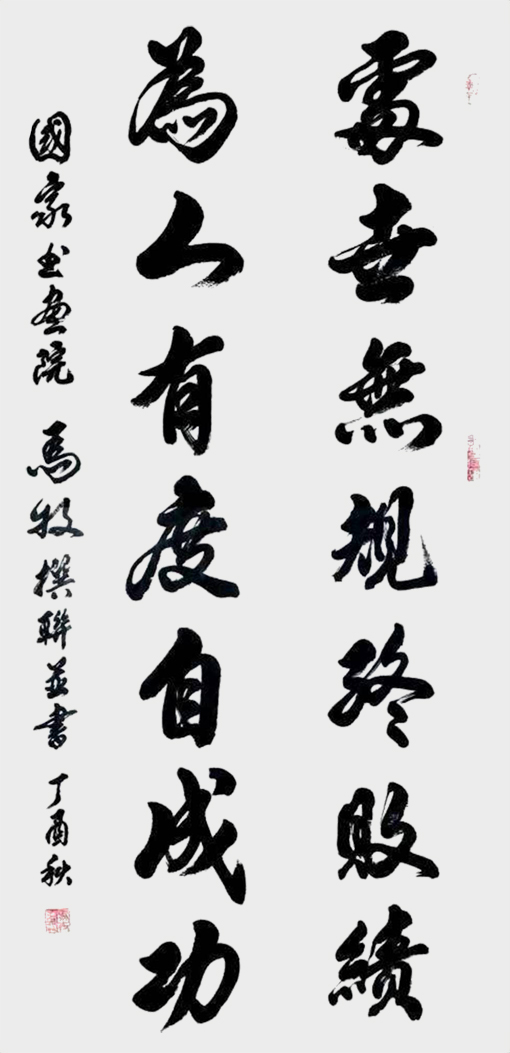 處世無規終敗績
為人有度自成功
國家书畫院 馬牧撰聯並書 丁酉秋